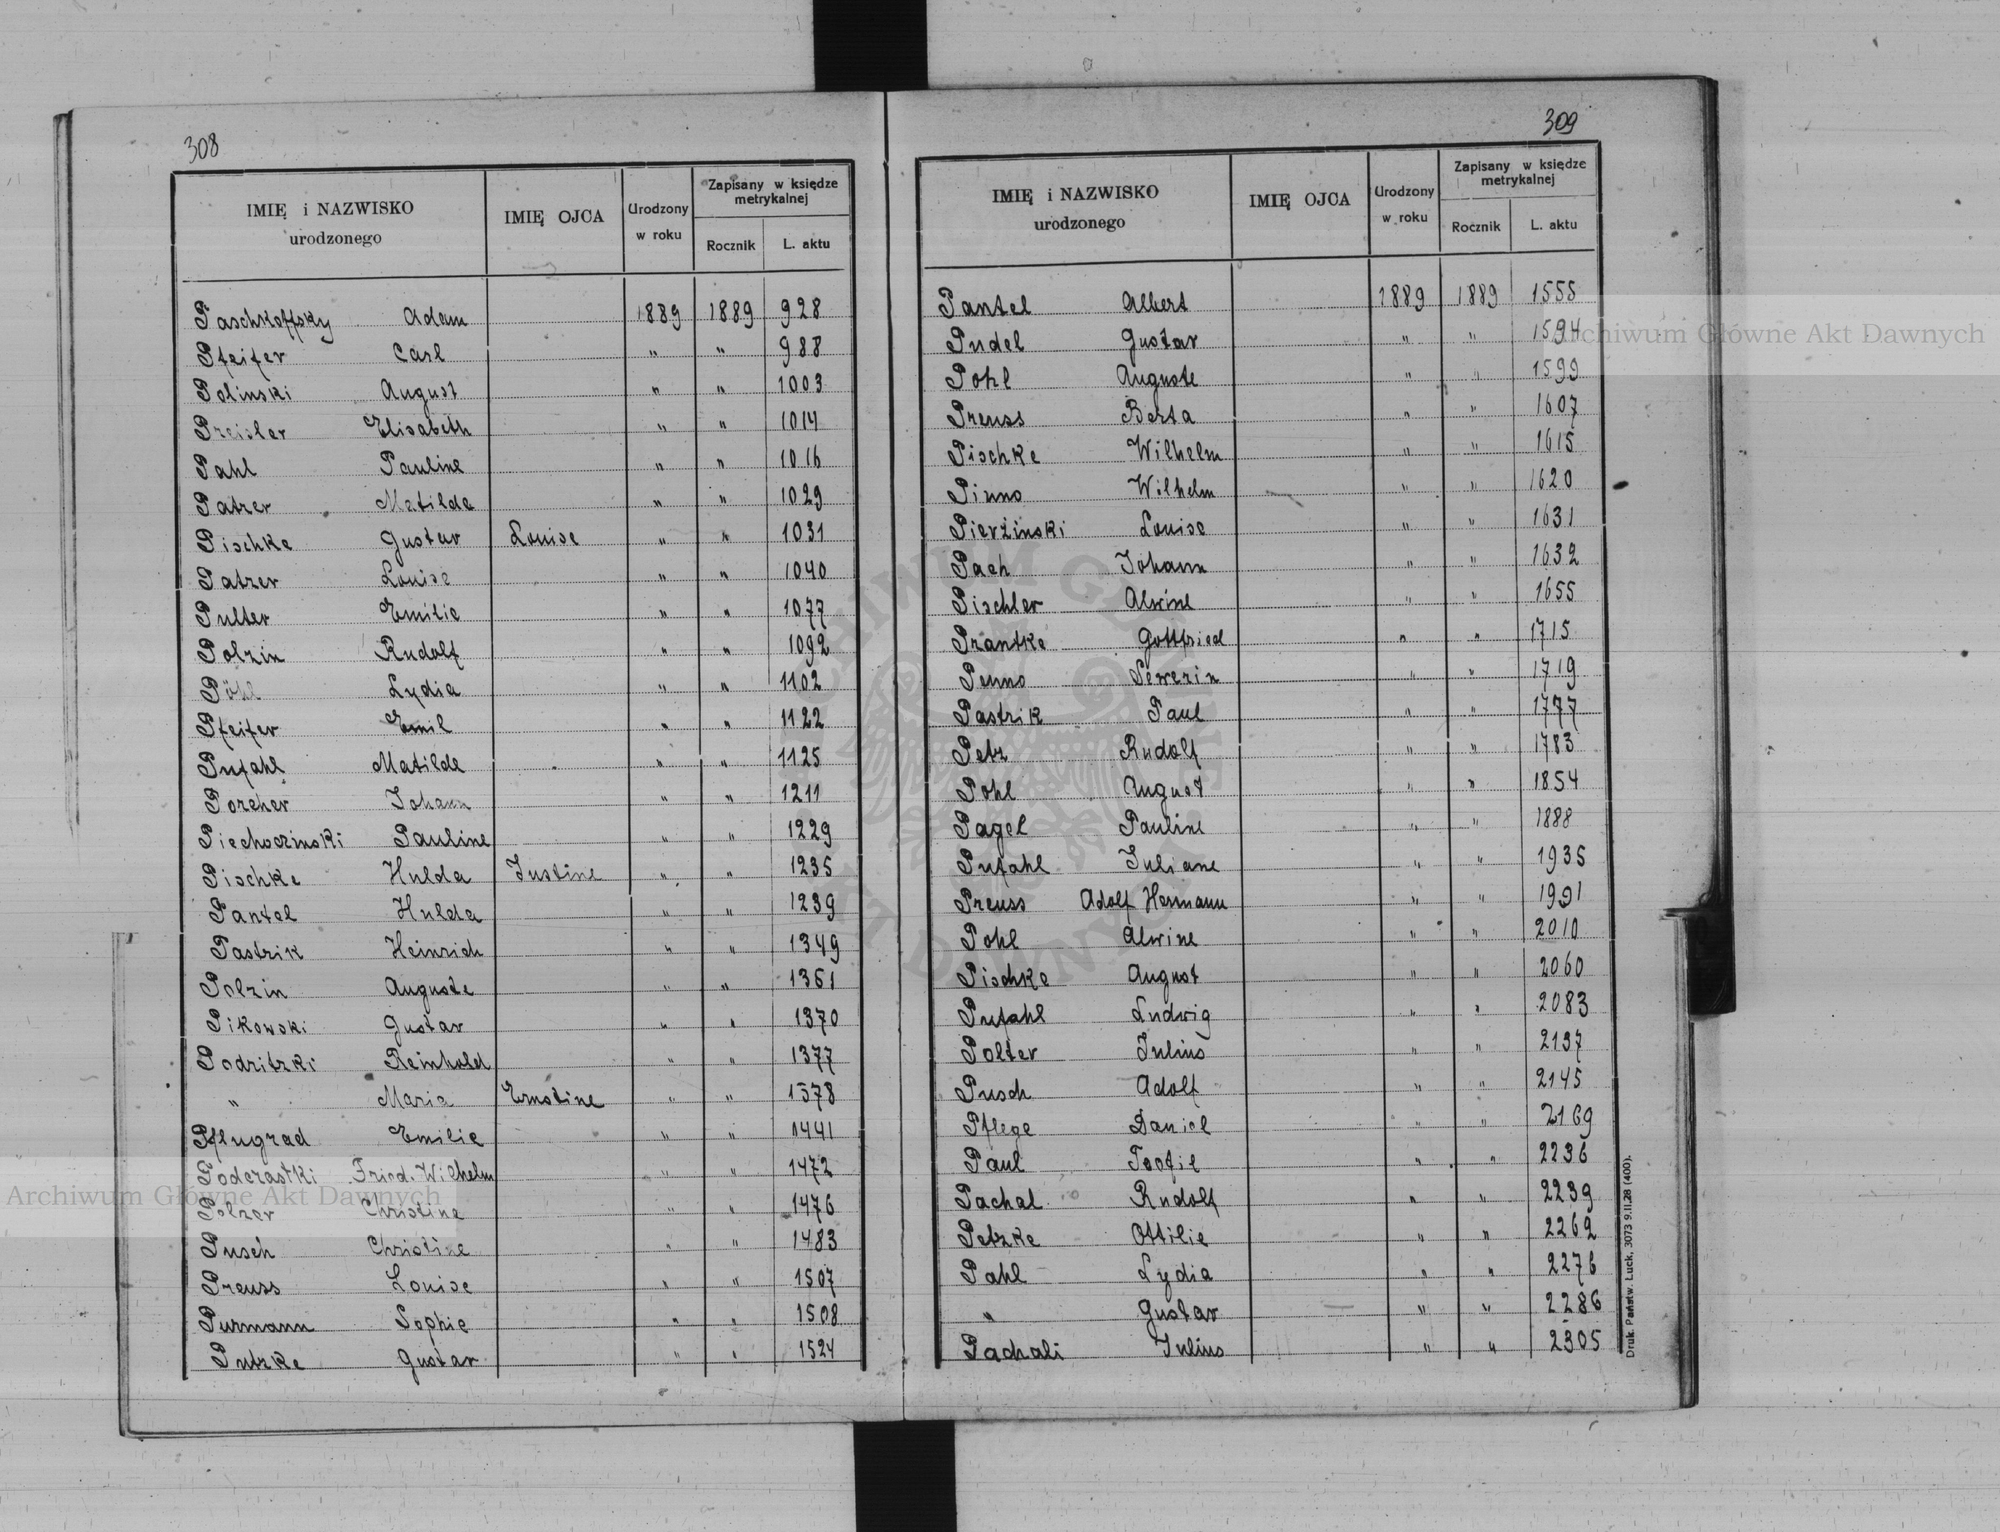 308
IMIĘ i NAZWISKO urodzonego IMIĘ OJCA Urodzony w roku Zapisany w księdze metrykalnej Rocznik L. aktu
Paschkoffsky Adam 1889 1889 928
Pfeifer Carl " " 988
Polinski August " " 1003
Preisler Elisabeth " " 1014
Pahl Pauline " " 1016
Patzer Matilde " " 1029
Pischke Gustav Louise " " 1031
Patzer Louise " " 1040
Pulter Emilie " " 1077
Polzin Rudolf " " 1092
Pöhl Lydia " " 1102
Pfeifer Emil " " 1122
Pufahl Matilde " " 1125
Porcher Johann " " 1211
Piechoczinski Pauline " " 1229
Pischke Hulda Justine " " 1235
Pantel Hulda " " 1239
Pastrik Heinrich " " 1349
Polzin Auguste " " 1361
Pikowski Gustav " " 1370
Podritzki Reinhold " " 1377
" Maria Ernstine " " 1378
Pflugrad Emilie " " 1441
Poderastki Fried. Wilhelm " " 1472
Polzer Christine " " 1476
Pusch Christine " " 1483
Preuss Louise " " 1507
Purmann Sophie " " 1508
Putzke Gustav " " 1524
309
IMIĘ i NAZWISKO urodzonego IMIĘ OJCA Urodzony w roku Zapisany w księdze metrykalnej Rocznik L. aktu
Pantel Albert 1889 1889 1555
Pudel Gustav " " 1594
Pohl Auguste " " 1599
Preuss Berta " " 1607
Pischke Wilhelm " " 1615
Pinno Wilhelm " " 1620
Pierżinski Louise " " 1631
Pach Johann " " 1632
Pischler Alwine " " 1655
Prantke Gottfried " " 1715
Penno Sewerin " " 1719
Pastrik Paul " " 1777
Petz Rudolf " " 1783
Pohl August " " 1854
Pagel Pauline " " 1888
Pufahl Juliane " " 1935
Preuss Adolf Hermann " " 1991
Pohl Alwine " " 2010
Pischke August " " 2060
Pufahl Ludwig " " 2083
Polter Julius " " 2137
Pusch Adolf " " 2145
Pflege Daniel " " 2169
Paul Teofil " " 2236
Pachal Rudolf " " 2239
Petzke Ottilie " " 2262
Pahl Lydia " " 2276
" Gustav " " 2286
Pachali Julius " " 2305
Druk. Państw. Łuck, 3073 9.II.28 (400).
Archiwum Główne Akt Dawnych
Archiwum Główne Akt Dawnych
ARCHIWUM GŁÓWNE AKT DAWNYCH